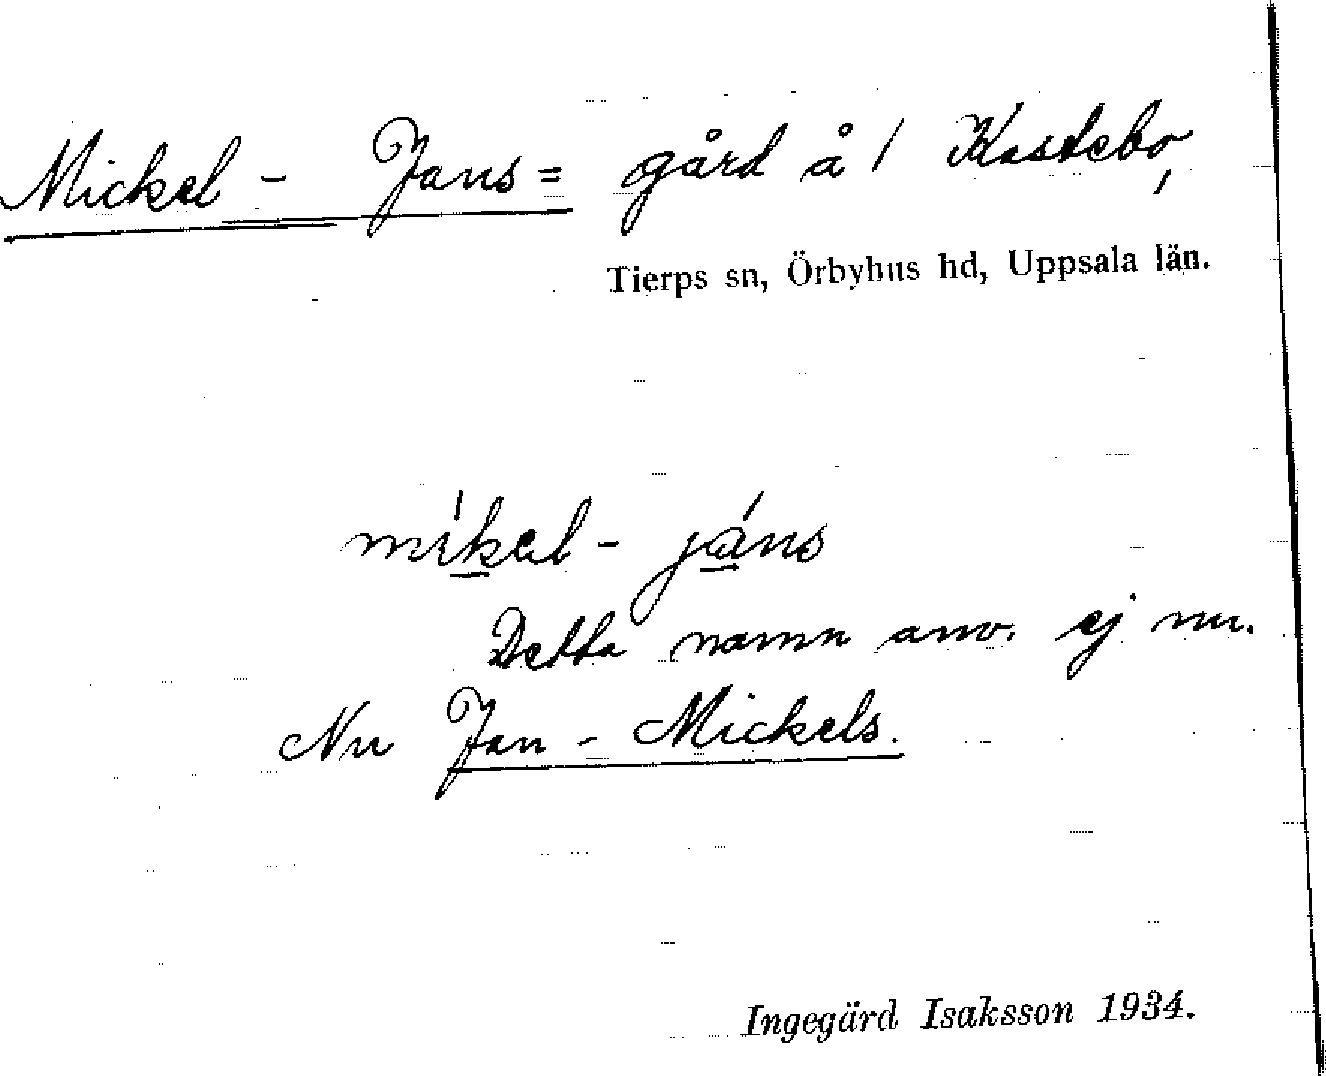 Mickel - Jans = gård å / Kastebo,
Tierps sn, Örbyhus hd, Uppsala län.
míkel - jáns
Detta namn anv. ej nu.
Nu Jan - Mickels.
Ingegärd Isaksson 1934.